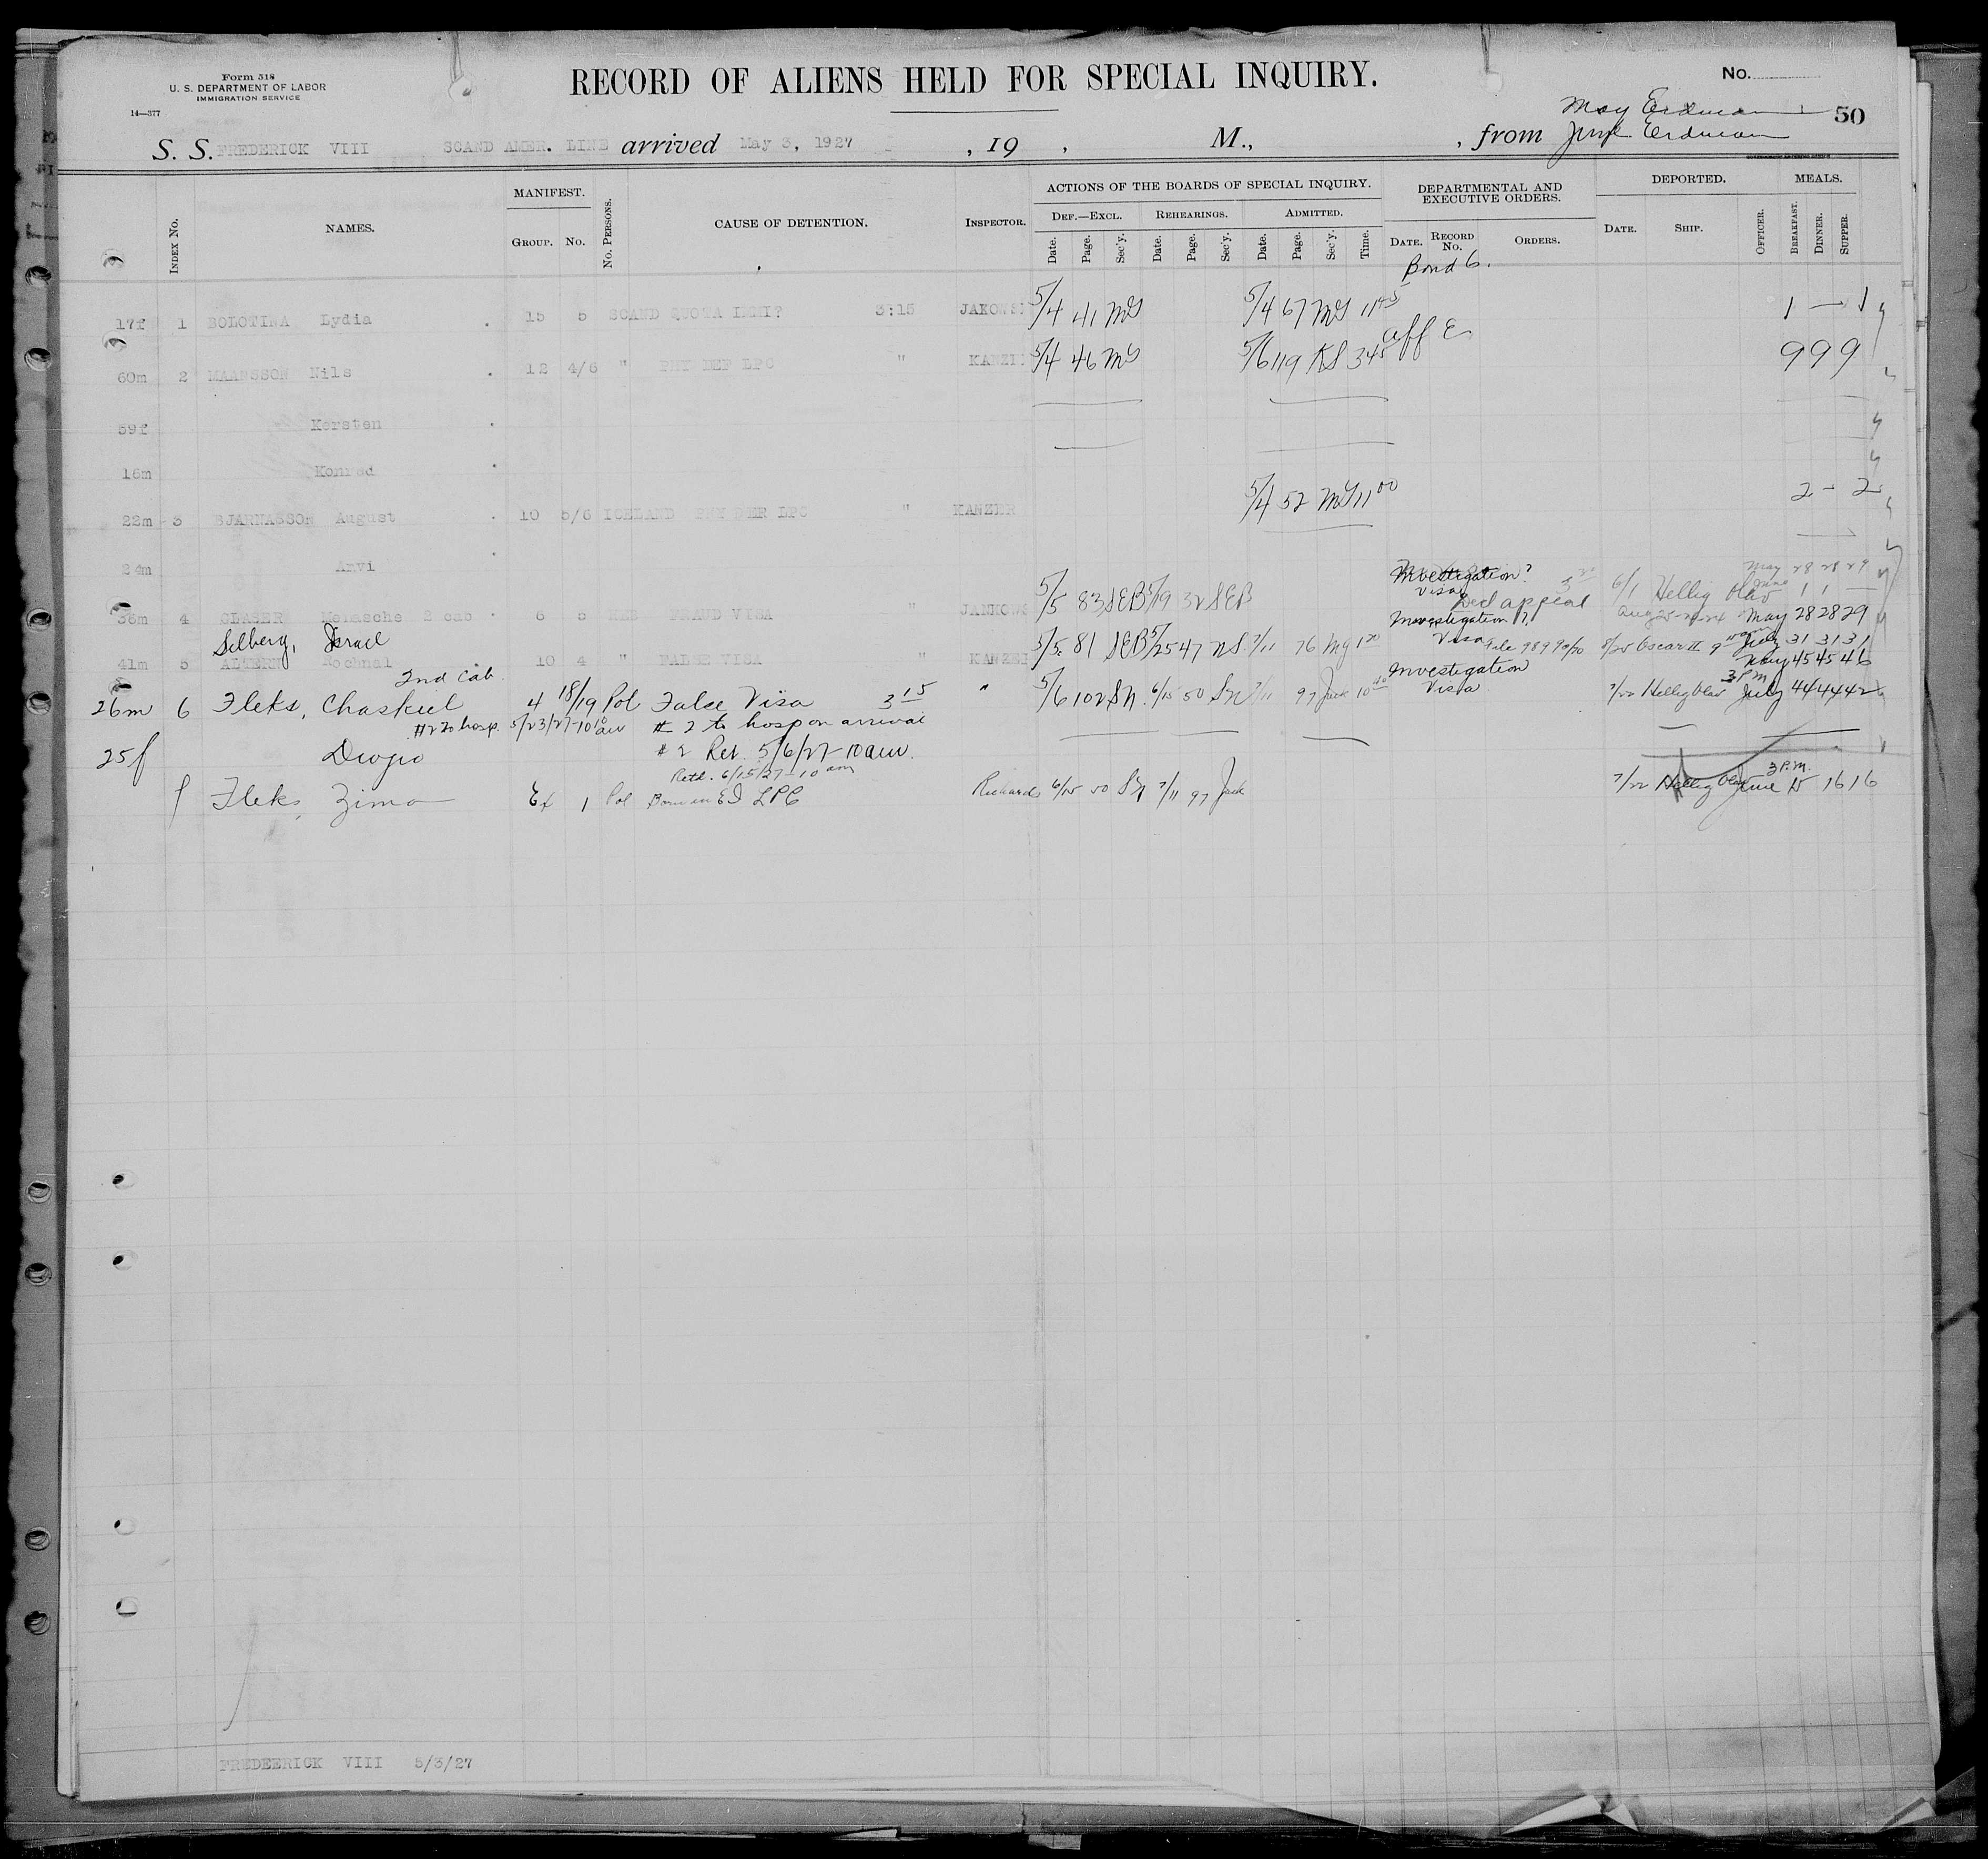 Form 518
U. S. DEPARTMENT OF LABOR
IMMIGRATION SERVICE
14—377
RECORD OF ALIENS HELD FOR SPECIAL INQUIRY.
No.
50
May Erdman
S. S. FREDERICK VIII SCAND AMER. LINE arrived May 3, 1927 , 19 , M., , from June Erdman
INDEX No. NAMES. MANIFEST. GROUP. No. No. PERSONS. CAUSE OF DETENTION. INSPECTOR. ACTIONS OF THE BOARDS OF SPECIAL INQUIRY. DEF.—EXCL. Date. Page. Sec'y. REHEARINGS. Date. Page. Sec'y. ADMITTED. Date. Page. Sec'y. Time. DEPARTMENTAL AND EXECUTIVE ORDERS. DATE. RECORD No. ORDERS. DEPORTED. DATE. SHIP. OFFICER. MEALS. BREAKFAST. DINNER. SUPPER.
Bond 6.
17f 1 BOLOTINA Lydia 15 5 SCAND QUOTA IMMI? 3:15 5/4 41 MG 5/4 67 MG 11 45 1 — 1
aff E
60m 2 MAANSSON Nils 12 4/6 " PHY DEF LPC " 5/4 46 MG 5/6 119 KS 345 9 9 9
59f Kersten
16m Konrad
22m 3 BJARNASSON August 10 5/6 ICELAND PHY DEF LPC " KANZER 5/4 52 MG 11 00 2 - 2
24m Arvi
Investigation? May 28 28 29
Visa
36m 4 Menasche 2 cab 6 HEB FRAUD VISA " 5/5 83 SEB 5/19 32 SEB Decl appeal 6/1 Hellig Olav June 1 1 —
Silberg, Israel
Investigation
Visa May 28 28 29
41m 5 10 4 " FALSE VISA " 5/5 81 SEB 5/25 47 NS 7/11 76 Mg 8/25 Oscar II July 31 31 31
2nd Cab
Aug 45 45 46
Investigation
Visa 3 PM
26m 6 Fleks, Chaskiel 4 18/19 Pol False Visa 3 15 " 5/6 102 SN 6/15 50 SN 7/11 97 Jack 10 40 7/22 Hellig Olav July 44 44 42
#2 to hosp. 5/23/27-10 10 am # 2 to hosp on arrival
25f # 2 Ret. 5/6/27-10am.
Retd. 6/15/27-10 am
3 P.M.
f Fleks, Zima Ex 1 Pol Born in EI LPC Richards 6/15 50 SN 7/11 97 Jack 7/22 Hellig Olav June 15 16 16
FREDEERICK VIII 5/3/27